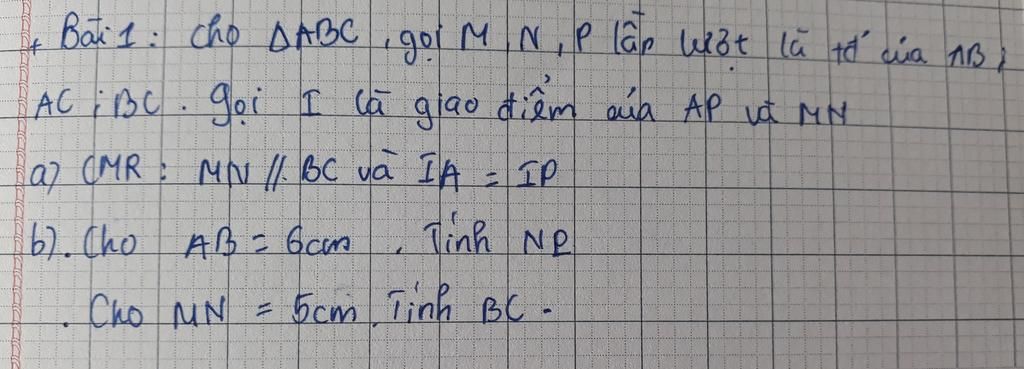 + Bài 1: Cho ΔABC, gọi M, N, P lần lượt là tđ của AB,
AC; BC. Gọi I là giao điểm của AP và MN
a) CMR: MN // BC và IA = IP
b). Cho AB = 6cm. Tính NP
. Cho MN = 5cm. Tính BC.